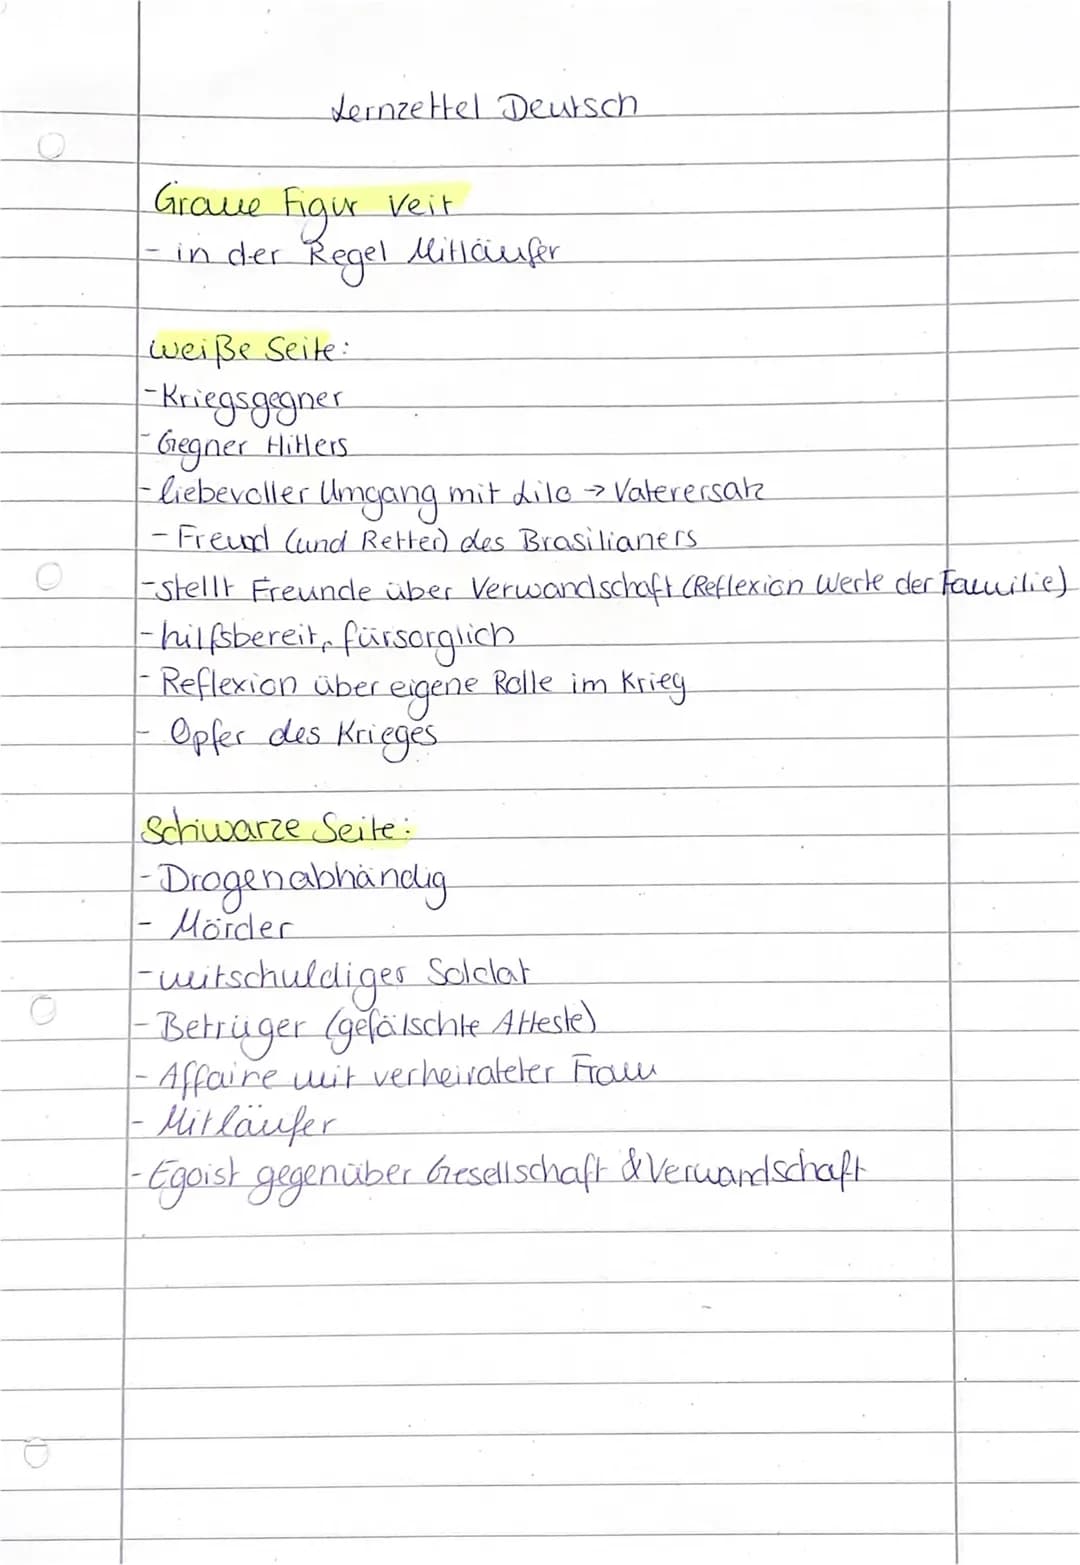 Lernzettel Deutsch
Graue Figur Veit
- in der Regel Mitläufer
weiße Seite:
- Kriegsgegner
- Gegner Hitlers
- liebevoller Umgang mit Lilo → Vaterersatz
- Freund (und Retter) des Brasilianers
- stellt Freunde über Verwandschaft (Reflexion Werte der Familie)
- hilfsbereit, fürsorglich
- Reflexion über eigene Rolle im Krieg
- Opfer des Krieges
Schwarze Seite:
- Drogenabhändig
- Mörder
- mitschuldiger Soldat
- Betrüger (gefälschte Atteste)
- Affaire mit verheirateter Frau
- Mitläufer
- Egoist gegenüber Gesellschaft & Verwandschaft